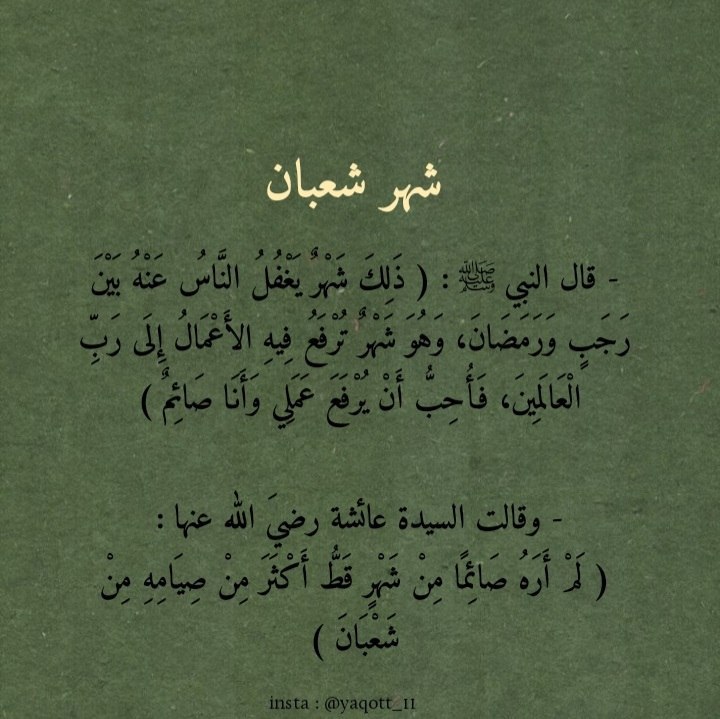 شهر شعبان
- قال النبي ﷺ : ( ذَلِكَ شَهْرٌ يَغْفُلُ النَّاسُ عَنْهُ بَيْنَ
رَجَبٍ وَرَمَضَانَ، وَهُوَ شَهْرٌ تُرْفَعُ فِيهِ الأَعْمَالُ إِلَى رَبِّ
الْعَالَمِينَ، فَأُحِبُّ أَنْ يُرْفَعَ عَمَلِي وَأَنَا صَائِمٌ )
- وقالت السيدة عائشة رضيَ الله عنها :
( لَمْ أَرَهُ صَائِمًا مِنْ شَهْرٍ قَطُّ أَكْثَرَ مِنْ صِيَامِهِ مِنْ
شَعْبَانَ )
insta : @yaqott_11